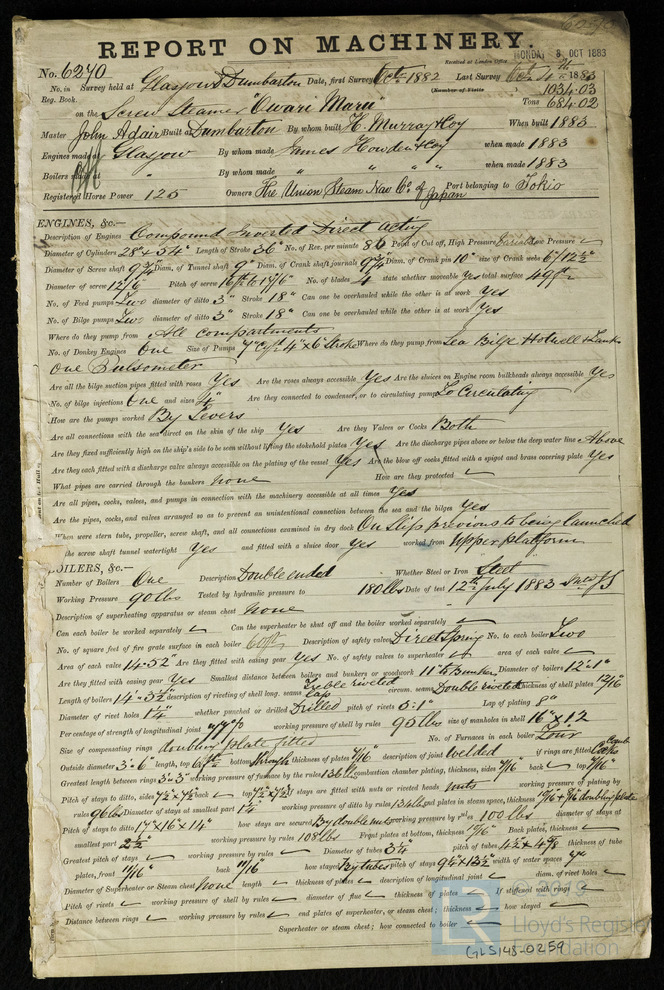 REPORT ON MACHINERY.
MONDAY 8 OCT 1883
No. 6270 Received at London Office
No. in Survey held at Glasgow & Dumbarton Date, first Survey Oct. 1882 Last Survey Oct 4th 1883
Reg. Book. (Number of Visits
on the Screw Steamer "Owari Maru" Tons 1034.03
684.02
Master John Adair Built at Dumbarton By whom built H. Murray & Co When built 1883
Engines made at Glasgow By whom made James Howden & Co when made 1883
Boilers made at " By whom made " " " when made 1883
Registered Horse Power 125 Owners The Union Steam Nav Co. of Japan Port belonging to Tokio
ENGINES, &c.—
Description of Engines Compound Inverted Direct Acting
Diameter of Cylinders 28 & 54" Length of Stroke 36" No. of Rev. per minute 80 Point of Cut off, High Pressure Low Pressure
Diameter of Screw shaft 9¾" Diam. of Tunnel shaft 9" Diam. of Crank shaft journals 9¾" Diam. of Crank pin 10" size of Crank webs
Diameter of screw 12/6" Pitch of screw No. of blades 4 state whether moveable Yes total surface 49
No. of Feed pumps Two diameter of ditto 3" Stroke 18" Can one be overhauled while the other is at work Yes
No. of Bilge pumps Two diameter of ditto 3" Stroke 18" Can one be overhauled while the other is at work Yes
Where do they pump from All compartments
No. of Donkey Engines One Size of Pumps 4" x 6" Stroke Where do they pump from Sea Bilge Hotwell & Tanks
One Pulsometer
Are all the bilge suction pipes fitted with roses Yes Are the roses always accessible Yes Are the sluices on Engine room bulkheads always accessible Yes
No. of bilge injections One and sizes Are they connected to condenser, or to circulating pump To Circulating
How are the pumps worked By Levers
Are all connections with the sea direct on the skin of the ship Yes Are they Valves or Cocks Both
Are they fixed sufficiently high on the ship's side to be seen without lifting the stokehold plates Yes Are the discharge pipes above or below the deep water line Above
Are they each fitted with a discharge valve always accessible on the plating of the vessel Yes Are the blow off cocks fitted with a spigot and brass covering plate Yes
What pipes are carried through the bunkers None How are they protected
Are all pipes, cocks, valves, and pumps in connection with the machinery accessible at all times Yes
Are the pipes, cocks, and valves arranged so as to prevent an unintentional connection between the sea and the bilges Yes
When were stern tube, propeller, screw shaft, and all connections examined in dry dock On slip previous to being launched
the screw shaft tunnel watertight Yes and fitted with a sluice door Yes worked from Upper platform
BOILERS, &c.—
Number of Boilers One Description Double ended Whether Steel or Iron Steel
Working Pressure 90 lbs Tested by hydraulic pressure to 180 lbs Date of test 12th July 1883
Description of superheating apparatus or steam chest None
Can each boiler be worked separately Can the superheater be shut off and the boiler worked separately
No. of square feet of fire grate surface in each boiler Description of safety valves Direct Spring No. to each boiler Two
Area of each valve 14.52" Are they fitted with easing gear Yes No. of safety valves to superheater area of each valve
Are they fitted with easing gear Yes Smallest distance between boilers and bunkers or woodwork 11" to Bunkers Diameter of boilers 12'.1"
Length of boilers description of riveting of shell long. seams Treble riveted Lap circum. seams Double riveted thickness of shell plates
Diameter of rivet holes 1¼" whether punched or drilled Drilled pitch of rivets Lap of plating 8"
Per centage of strength of longitudinal joint working pressure of shell by rules 90 lbs size of manholes in shell 16" x 12
Size of compensating rings doubling plate fitted No. of Furnaces in each boiler Four
Outside diameter 3'.6" length, top bottom through thickness of plates description of joint Welded if rings are fitted
Greatest length between rings working pressure of furnace by the rules 136 lbs combustion chamber plating, thickness, sides back top
Pitch of stays to ditto, sides back top If stays are fitted with nuts or riveted heads nuts working pressure of plating by
rules 96 lbs Diameter of stays at smallest part working pressure of ditto by rules end plates in steam space, thickness doubling plate
Pitch of stays to ditto how stays are secured By double nuts working pressure by rules 100 lbs diameter of stays at
smallest part working pressure by rules 108 lbs Front plates at bottom, thickness Back plates, thickness
Greatest pitch of stays working pressure by rules Diameter of tubes pitch of tubes thickness of tube
plates, front back how stayed By tubes pitch of stays width of water spaces
Diameter of Superheater or Steam chest None length thickness of plates description of longitudinal joint diam. of rivet holes
Pitch of rivets working pressure of shell by rules diameter of flue thickness of plates If stiffened with rings
Distance between rings working pressure by rules end plates of superheater, or steam chest; thickness how stayed
Superheater or steam chest; how connected to boiler
Lloyd's Register
Foundation
GLS148-0259